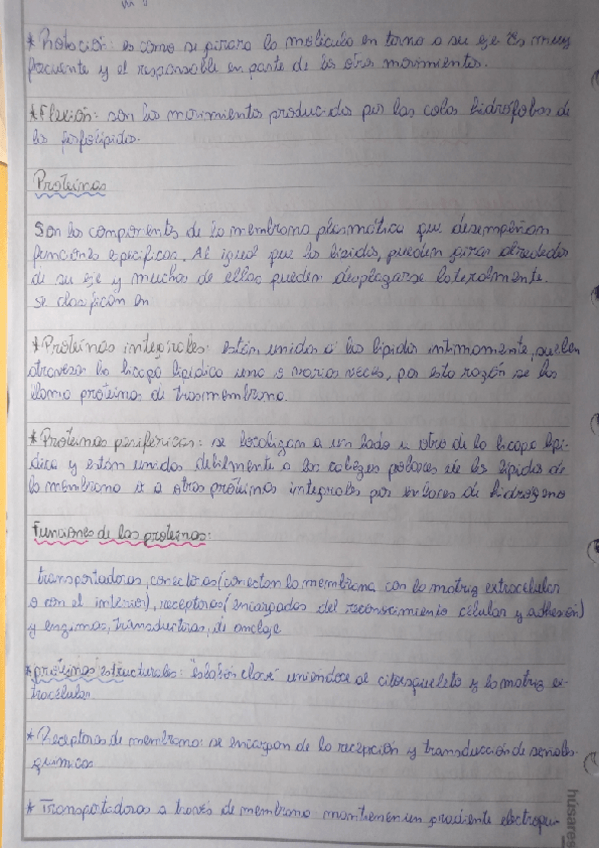 * Rotación: es como se girara la molécula en torno a su eje es muy
frecuente y el responsable en parte de los otros movimientos.
* Flexión: son los movimientos producidos por las colas hidrófobas de
los fosfolípidos.
Proteínas
Son los componentes de la membrana plasmática que desempeñan
funciones específicas. Al igual que los lípidos, pueden girar alrededor
de su eje y muchas de ellas pueden desplazarse lateralmente.
se clasifican en
* Proteínas integrales: están unidas a los lípidos íntimamente, suelen
atravesar la bicapa lipídica una o varias veces, por esta razón se las
llama proteínas de trasmembrana.
* Proteínas periféricas: se localizan a un lado u otro de la bicapa lipí-
dica y están unidas débilmente a las cabezas polares de los lípidos de
la membrana u a otras proteínas integrales por enlaces de hidrógeno
Funciones de las proteínas:
transportadoras, conectoras (conectan la membrana con la matriz extracelular
o con el interior), receptoras (encargadas del reconocimiento celular y adhesión)
y enzimas, transductoras, de anclaje
* proteínas estructurales: "eslabón clave" uniéndose al citoesqueleto y la matriz ex-
tracelular.
* Receptoras de membrana: se encargan de la recepción y transducción de señales
químicas
* Transportadoras a través de membrana mantienen un gradiente electroqui-
húsares